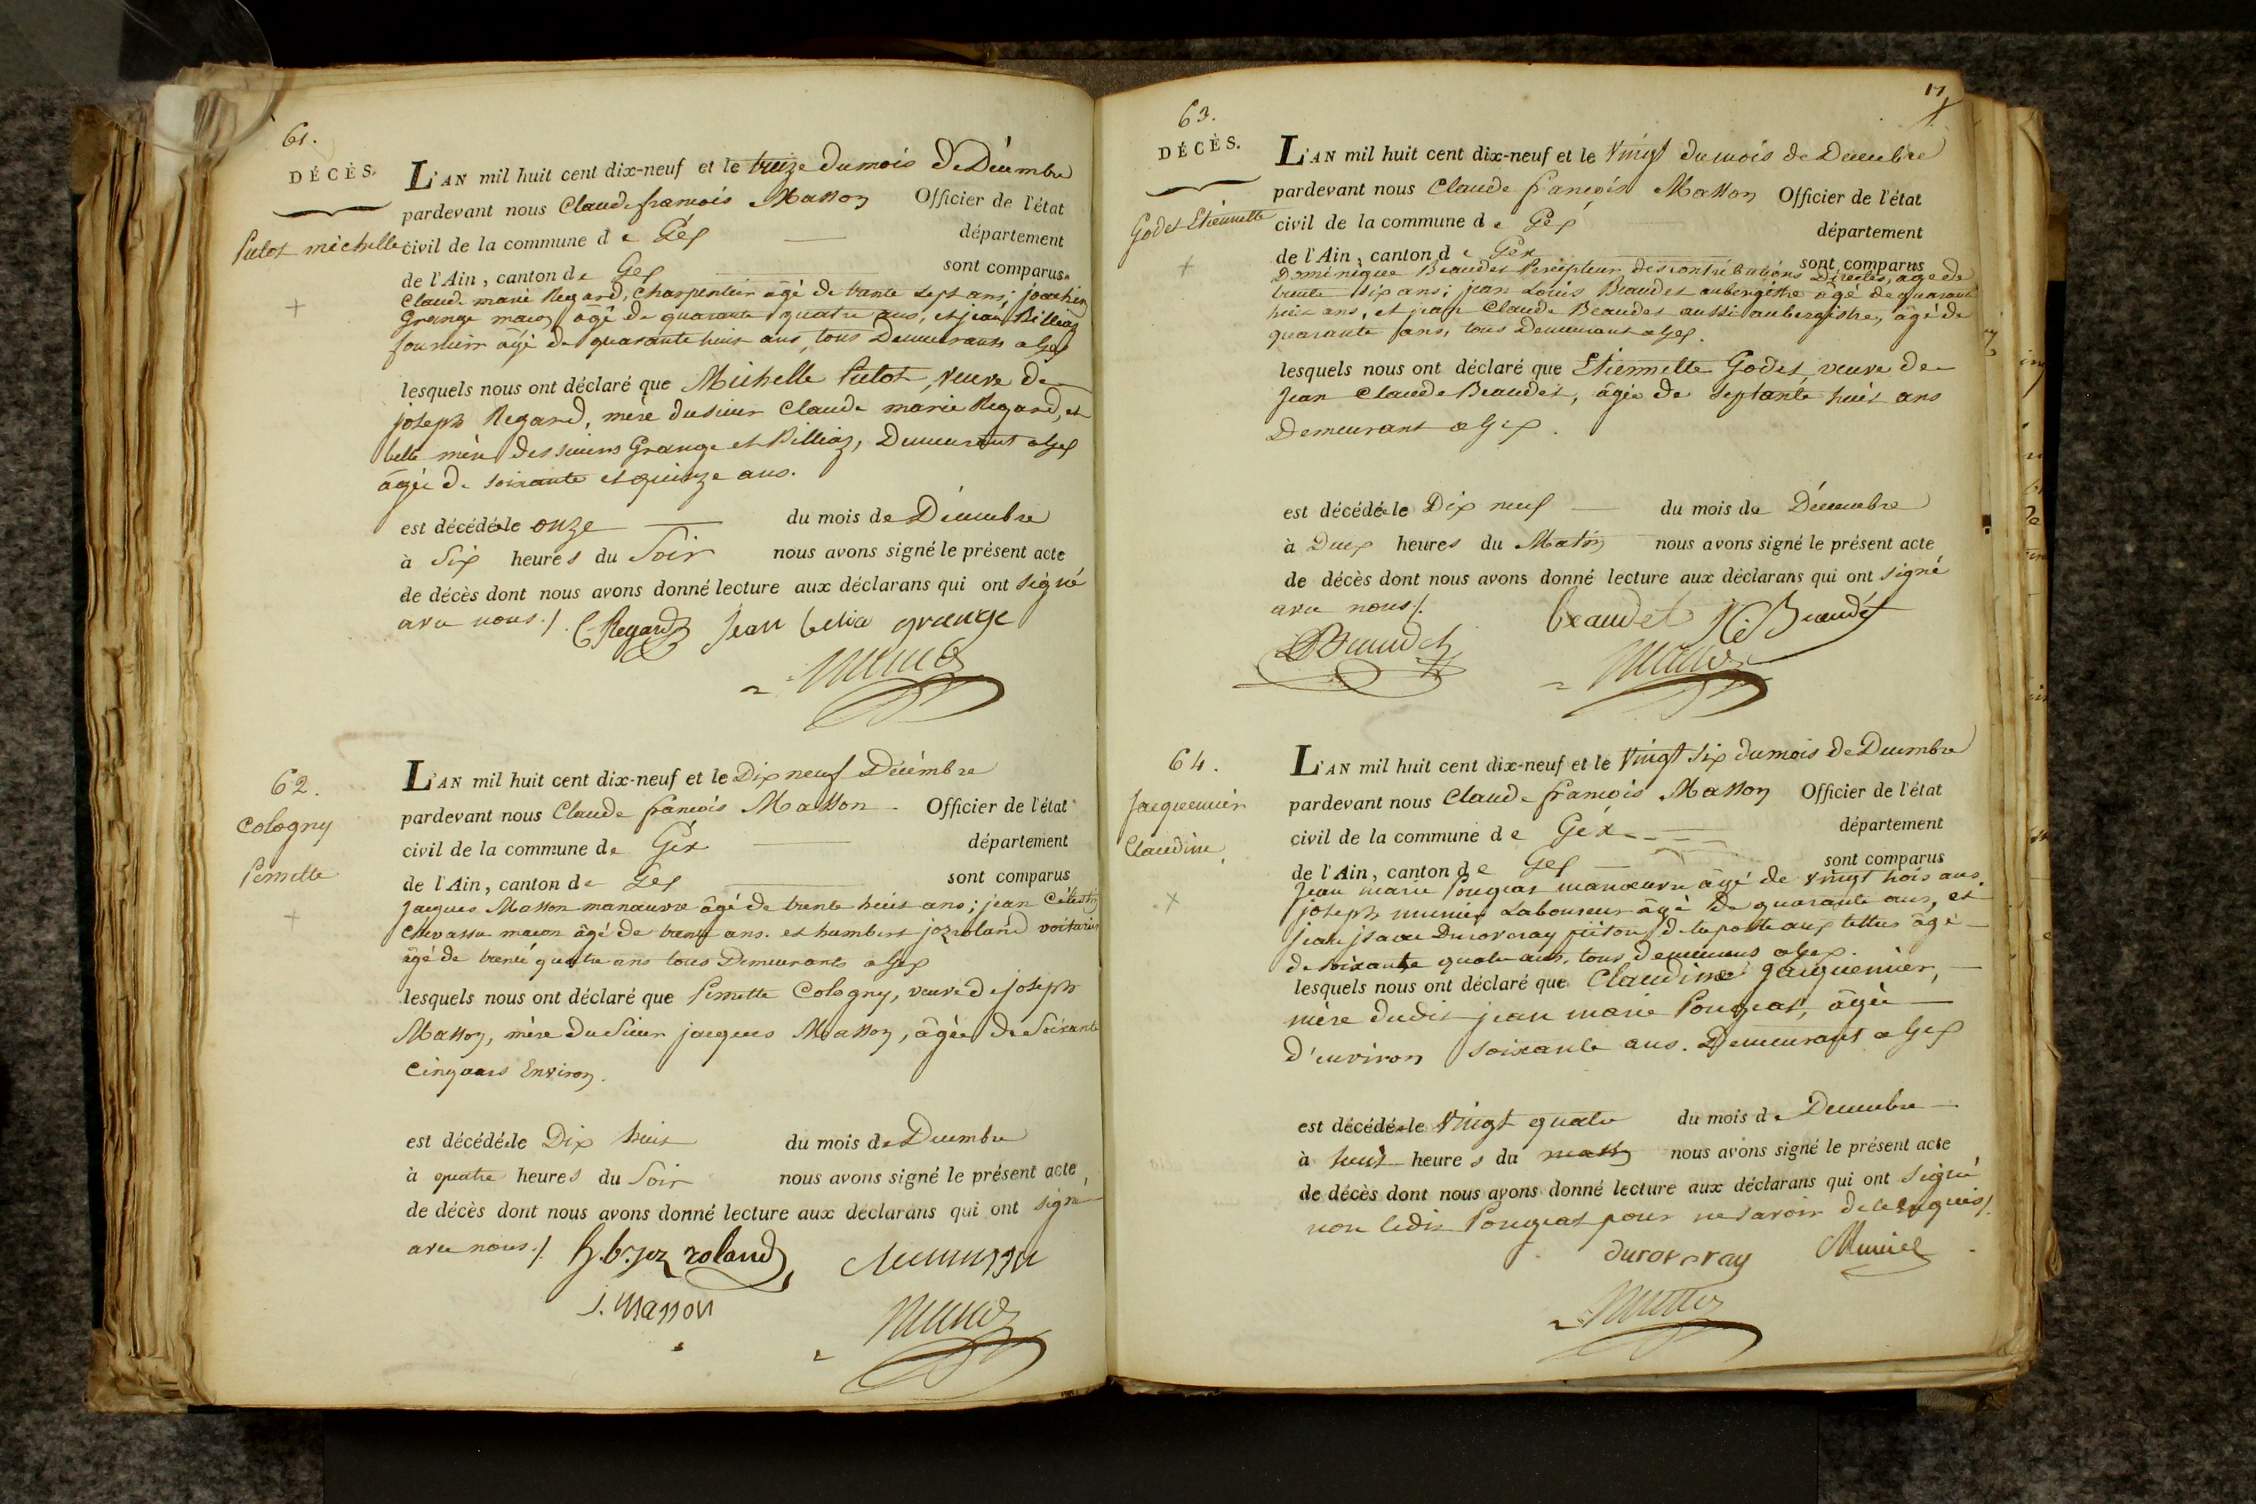 61.
DÉCÈS.
Putot michelle
L'AN mil huit cent dix-neuf et le treize du mois de Décembre
pardevant nous Claude francois Masson Officier de l'état
civil de la commune de Géx département
de l'Ain, canton de Gex sont comparus
Claude marie Regard, Charpentier âgé de trente sept ans; joachim
Grange macon âgé de quarante quatre ans, et jean Billiaz
fournier âgé de quarante huit ans, tous Demeurants a Gex
lesquels nous ont déclaré que Michelle Putot, veuve de
joseph Regard, mère du sieur Claude marie Regard, et
belle mère des sieurs Grange et Billiaz, Demeurant a Gex
âgée de soixante et quinze ans.
est décédée le onze du mois de Décembre
à Six heures du Soir nous avons signé le présent acte
de décès dont nous avons donné lecture aux déclarans qui ont signé
avec nous./. C Regard Jean belia grange
Masson
62.
Cologny
Pernette
L'AN mil huit cent dix-neuf et le Dix neuf Décembre
pardevant nous Claude francois Masson Officier de l'état
civil de la commune de Géx département
de l'Ain, canton de Gex sont comparus
Jacques Masson manœuvre âgé de trente huit ans; jean Célestin
Chevassu macon âgé de trente ans. et humbert joz roland voiturier
âgé de trente quatre ans tous Demeurants a Gex
lesquels nous ont déclaré que Pernette Cologny, veuve de joseph
Masson, mère du Sieur jacques Masson, âgée de Soixante
cinq ans Environ.
est décédée le Dix huit du mois de Decembre
à quatre heures du Soir nous avons signé le présent acte
de décès dont nous avons donné lecture aux déclarans qui ont signé
avec nous./. h.b. joz roland
J. Masson
Masson
17
63.
DÉCÈS.
Godet Etiennette
L'AN mil huit cent dix-neuf et le Vingt du mois de Decembre
pardevant nous Claude francois Masson Officier de l'état
civil de la commune de Géx département
de l'Ain, canton de Gex sont comparus
Dominique Beaudet Percepteur des contributions Directes, âgé de
trente six ans; jean Louis Beaudet aubergiste âgé de quarante
huit ans, et jean Claude Beaudet aussi aubergiste, âgé de
quarante ans, tous Demeurant a Gex.
lesquels nous ont déclaré que Etiennette Godet, veuve de
Jean Claude Beaudet, âgée de septante huit ans
Demeurant a Gex.
est décédée le Dix neuf du mois de Décembre
à Deux heures du Matin nous avons signé le présent acte
de décès dont nous avons donné lecture aux déclarans qui ont signé
avec nous/. beaudet J C Beaudet
D Beaudet
Masson
64.
Jacquemier
Claudine
L'AN mil huit cent dix-neuf et le Vingt Six du mois de Decembre
pardevant nous Claude francois Masson Officier de l'état
civil de la commune de Géx département
de l'Ain, canton de Gex sont comparus
Jean marie Pougeat manœuvre âgé de vingt trois ans,
joseph munier Laboureur âgé de quarante ans, et
jean jsaac Duroveray piéton de la poste aux lettres âgé
de soixante quatre ans, tous demeurans a Gex.
lesquels nous ont déclaré que Claudine Jacquemier,
mère dudit jean marie Pougeat, âgée
d'environ soixante ans. Demeurant a Gex
est décédée le Vingt quatre du mois de Decembre
à huit heures du matin nous avons signé le présent acte
de décès dont nous avons donné lecture aux déclarans qui ont Signé
non ledit Pougeat pour ne savoir de ce requis/.
duroveray Munier
Masson